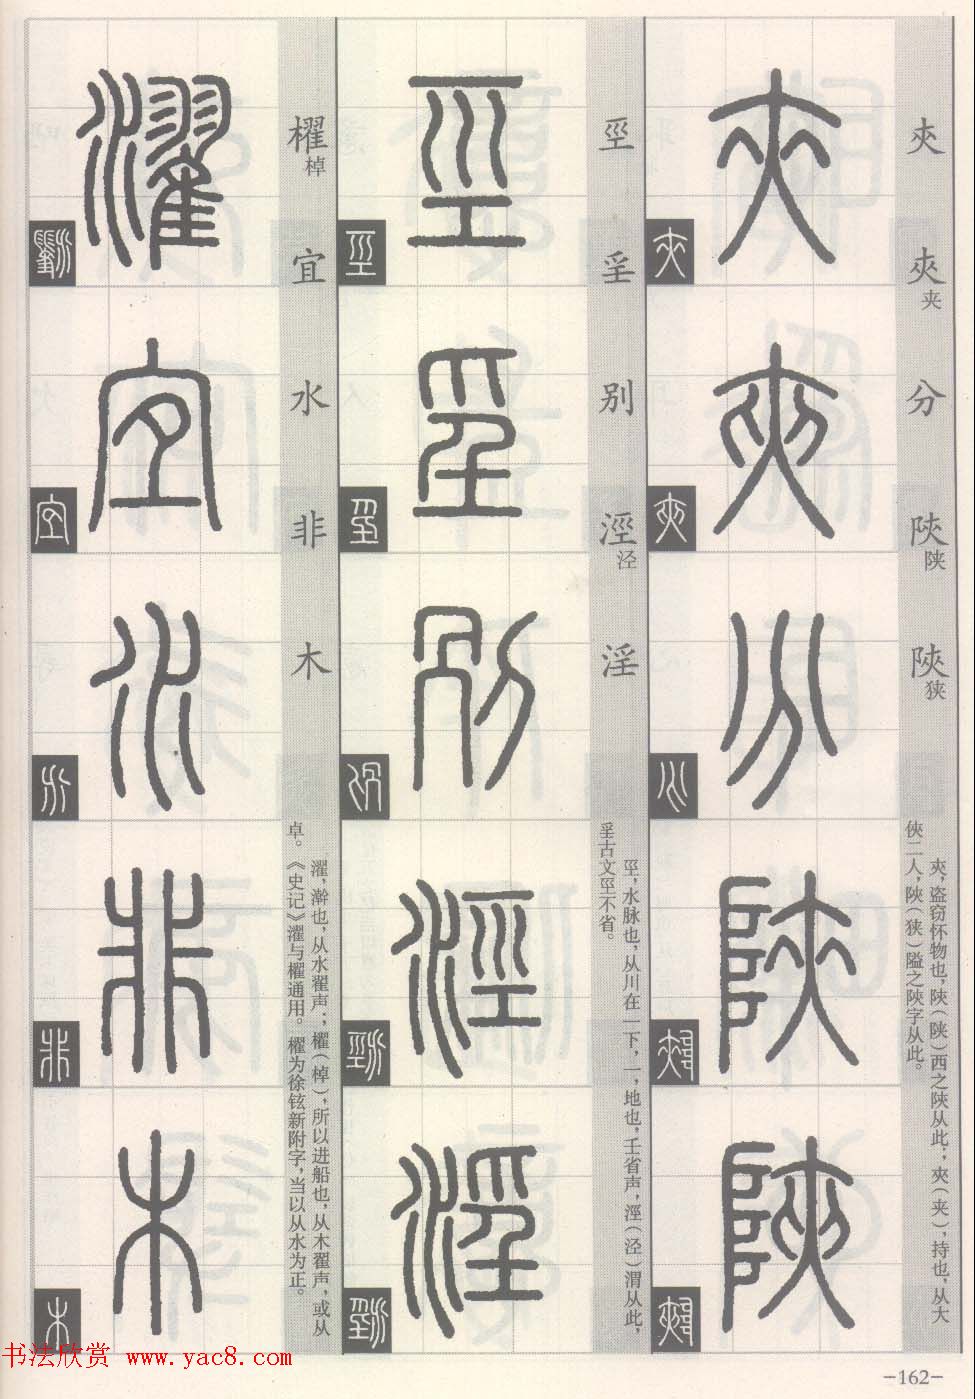 夾
夾夹
分
陝陕
陜狭
夾，盗窃怀物也，陝（陕）西之陝从此；夾（夹），持也，从大
俠二人，陜（狭）隘之陜字从此。
巠
𡈼
别
涇泾
淫
巠，水脉也，从川在一下，一，地也，壬省声，涇（泾）渭从此，
𡈼古文巠不省。
櫂棹
宜
水
非
木
濯，澣也，从水翟声；櫂（棹），所以进船也，从木翟声，或从
卓。《史记》濯与櫂通用。櫂为徐铉新附字，当以从水为正。
书法欣赏 www.yac8.com
-162-